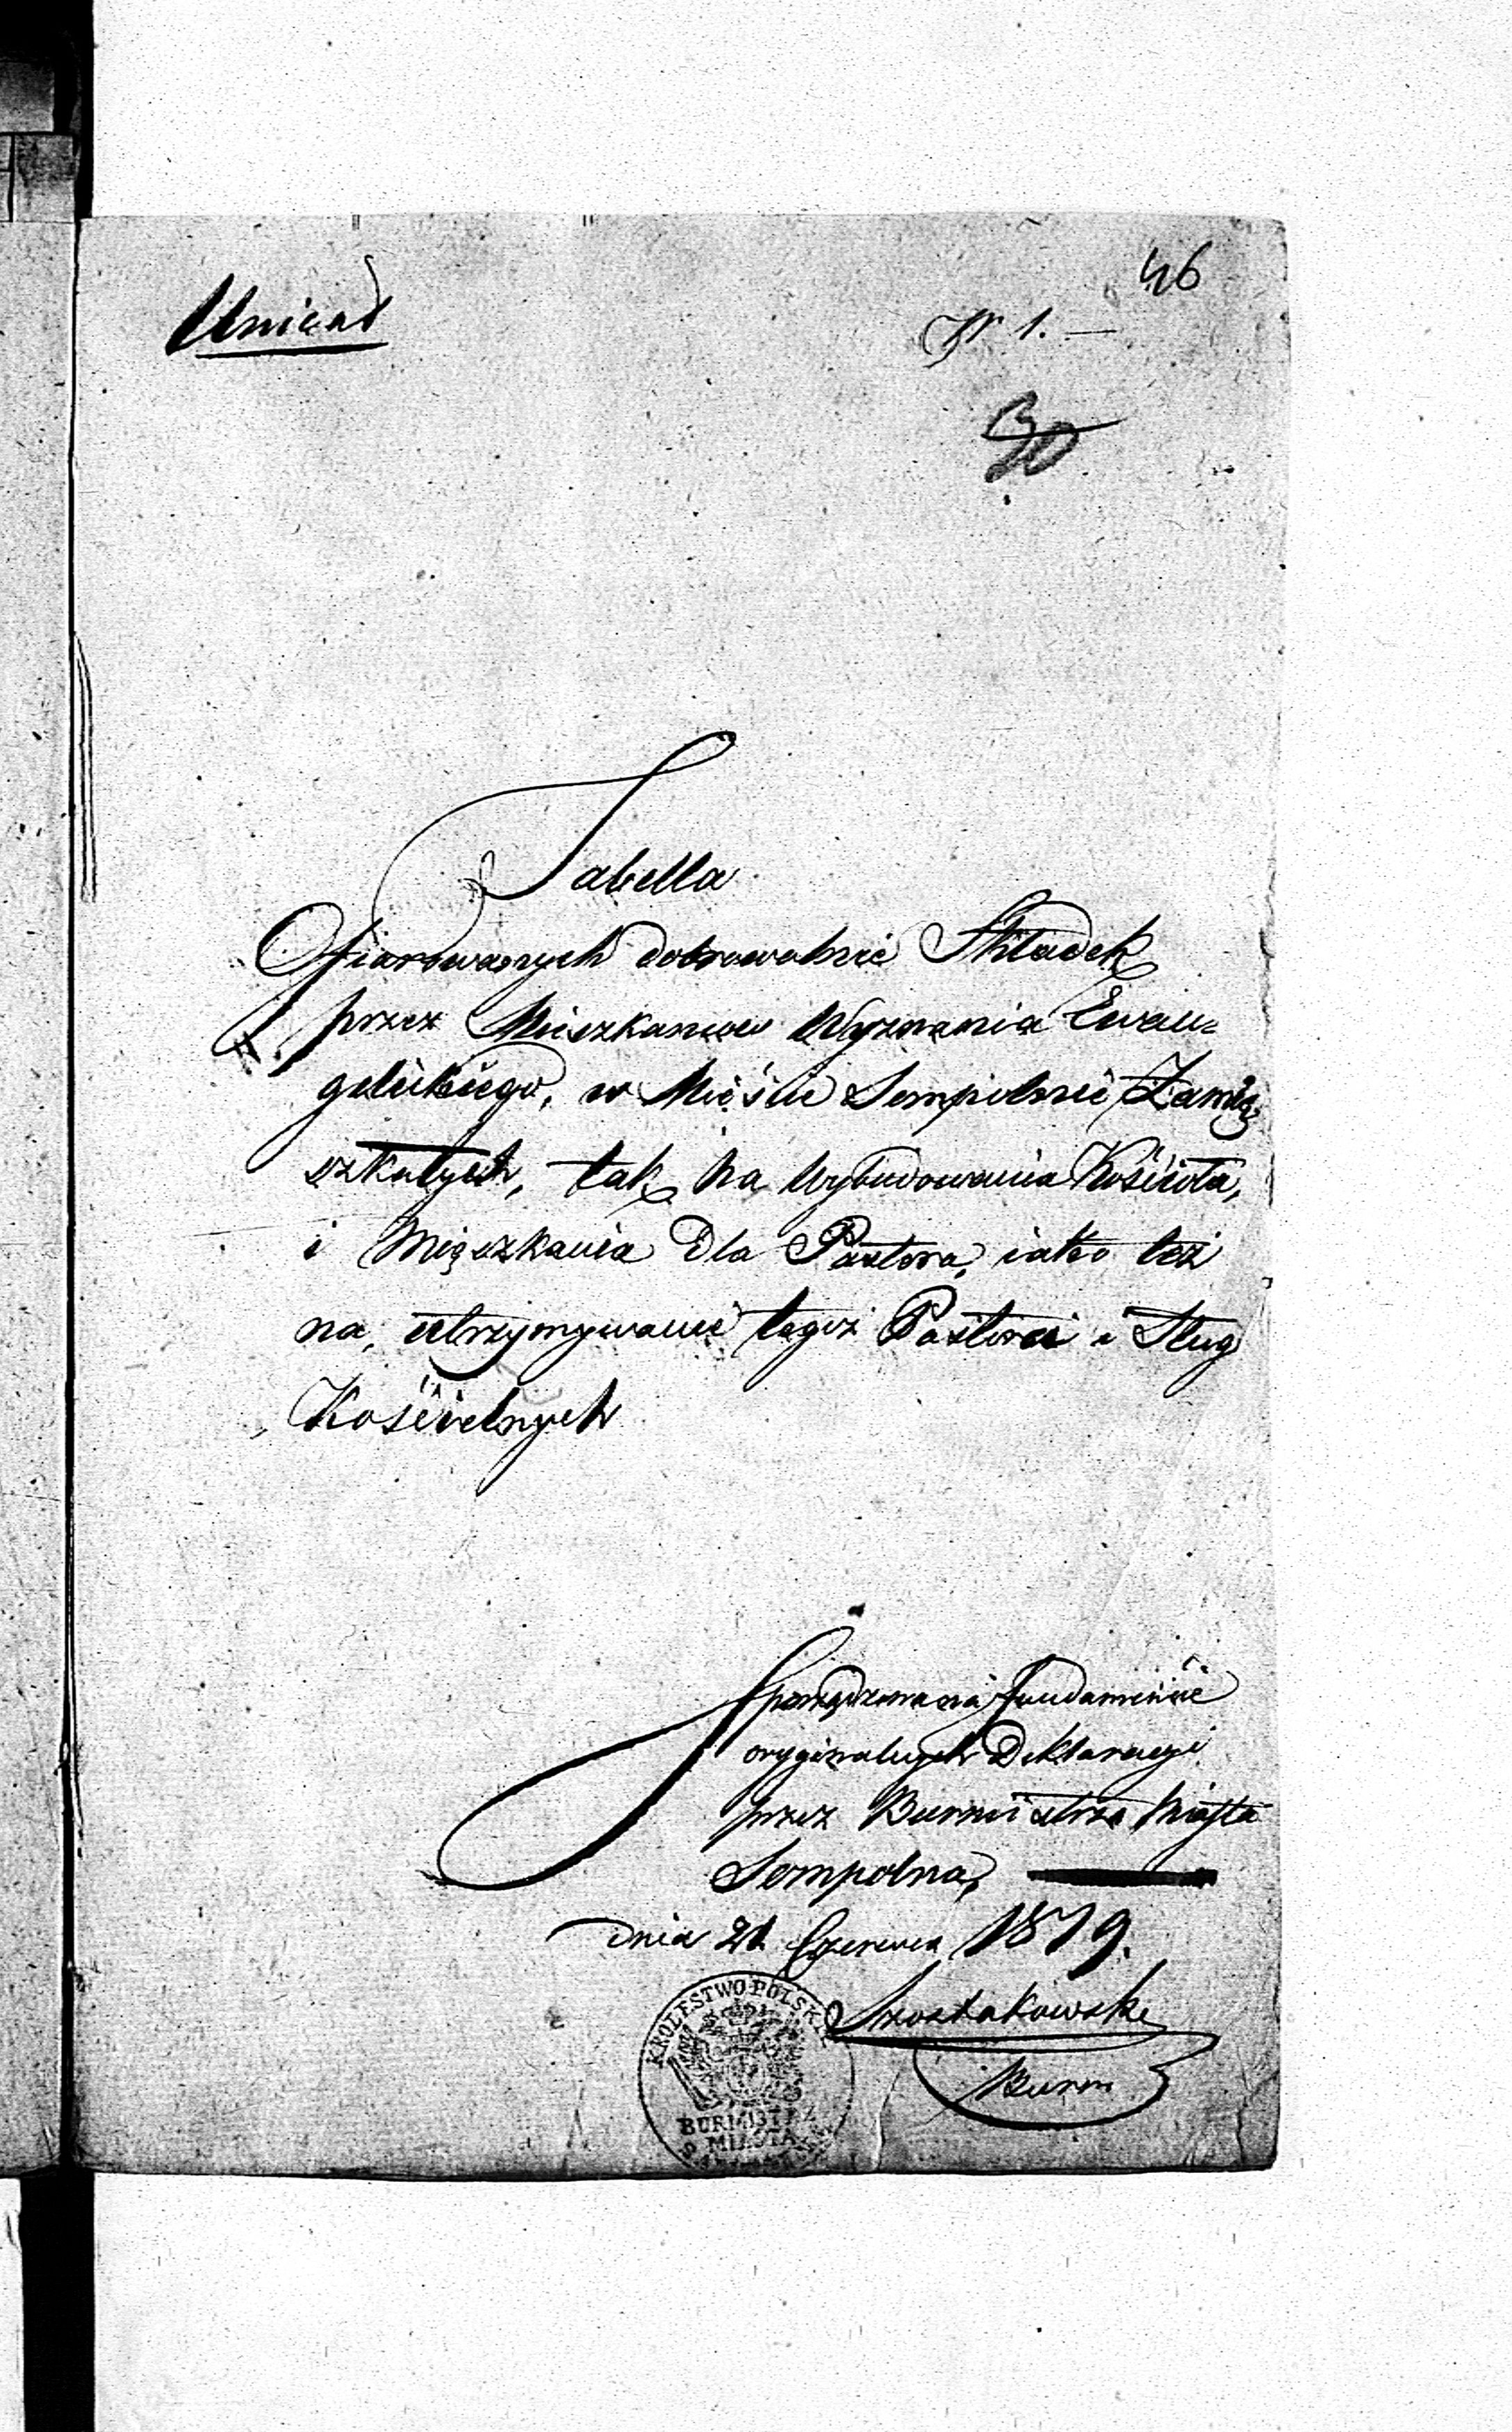 46
Unicat
Nr 1. —
30
Tabella
Ofiarowanych dobrowolnie Składek
przez Mieszkancow Wyznania Ewan=
gelickiego, w Mieście Sempolnie Zamię
szkałych, tak na wybudowania Kościoła,
i Mięszkania dla Pastora, iako też
na, utrzymywanie tegoż Pastora i Sług
Kościelnych
Sporządzona na fundamencie
oryginalnych Deklaracyi
przez Burmistrza Miasta
Sempolna,
dnia 21 Czerwca 1819.
Szostakowski
Burm
KROLESTWO POLSK
BURMISTRZ
MIASTA